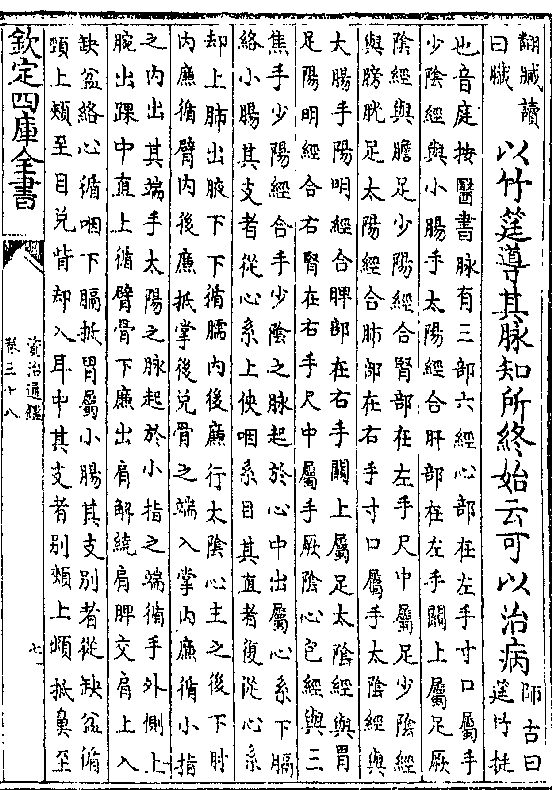 翻臟讀
曰臟
以竹筳導其脉知所終始云可以治病
師古曰
筳竹挺
也音庭按醫書脉有三部六經心部在左手寸口屬手
少陰經與小腸手太陽經合肝部在左手關上屬足厥
陰經與膽足少陽經合腎部在左手尺中屬足少陰經
與膀胱足太陽經合肺部在右手寸口屬手太陰經與
大腸手陽明經合脾部在右手關上屬足太陰經與胃
足陽明經合右腎在右手尺中屬手厥陰心包經與三
焦手少陽經合手少陰之脉起於心中出屬心系下膈
絡小腸其支者從心系上俠咽系目其直者復從心系
却上肺出腋下下循臑内後廉行太陰心主之後下肘
内廉循臂内後廉抵掌後兌骨之端入掌内廉循小指
之内出其端手太陽之脉起於小指之端循手外側上
腕出踝中直上循臂骨下廉出肩解繞肩脾交肩上入
缺盆絡心循咽下膈抵胃屬小腸其支别者從缺盆循
頸上頰至目兌眥却入耳中其支者别頰上䪼抵鼻至
欽定四庫全書
資治通鑑
卷三十八
七